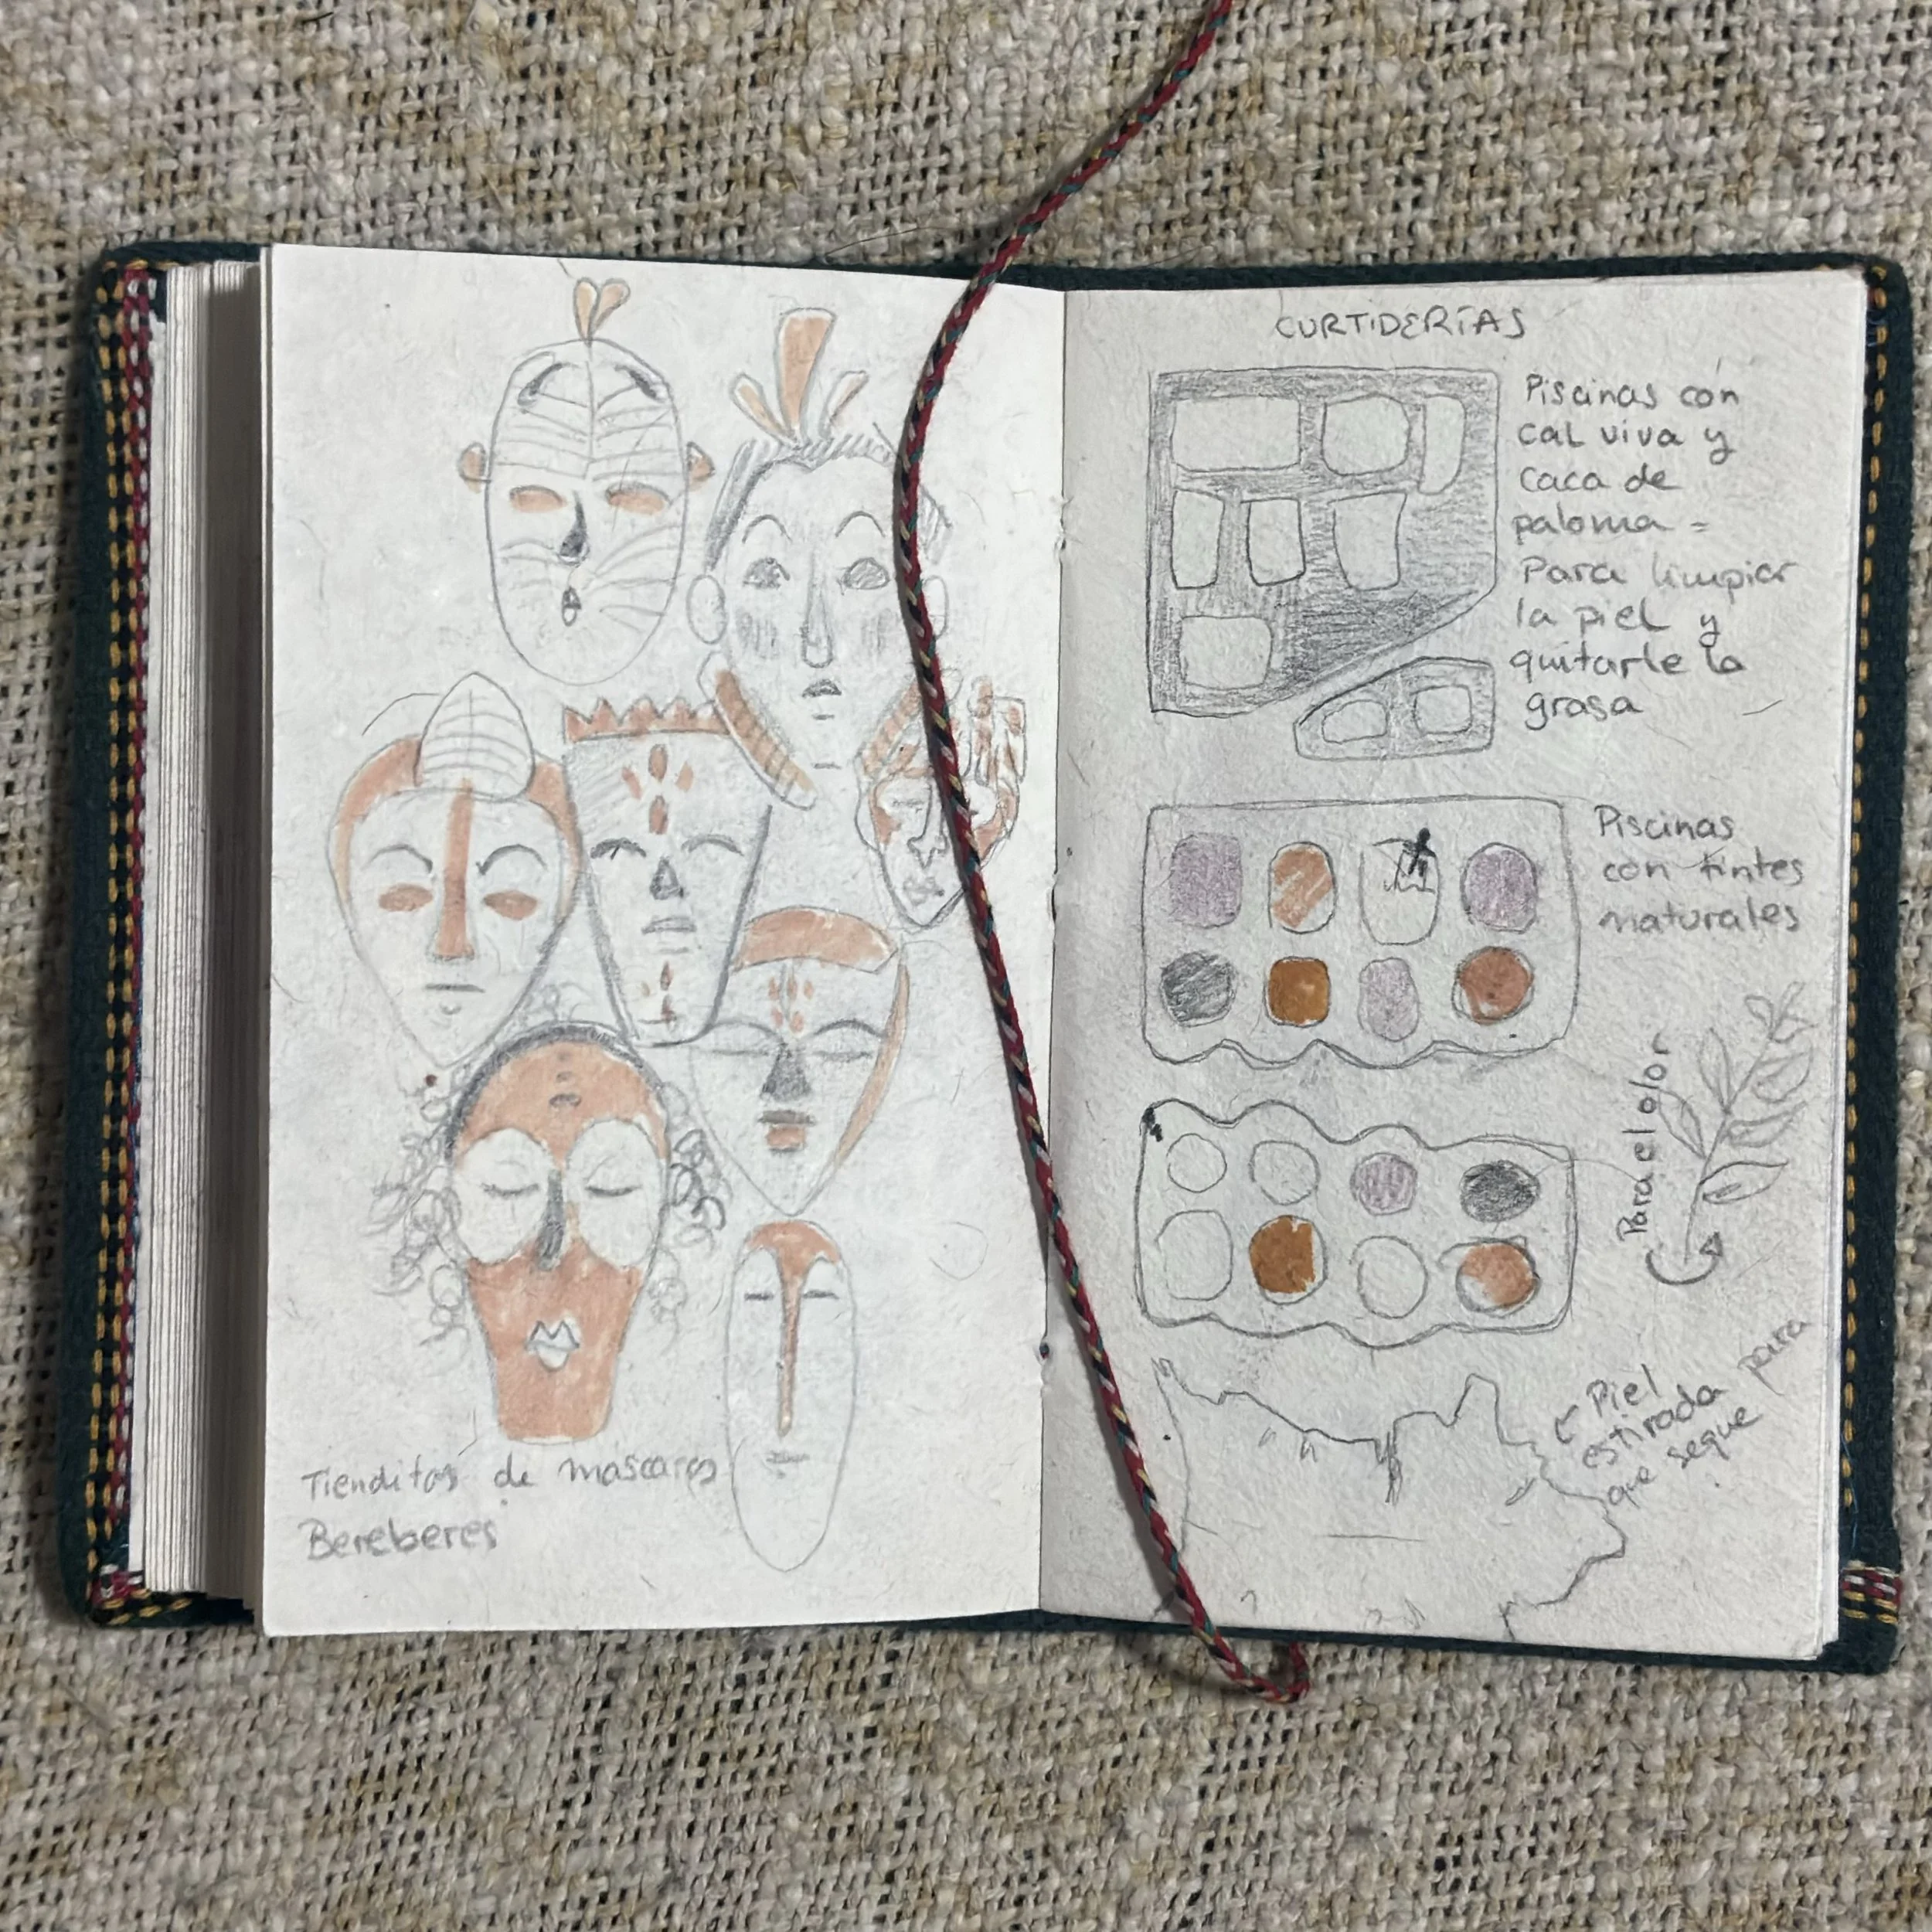 Tienditas de mascaras
Bereberes
CURTIDERÍAS
Piscinas con
cal viva y
caca de
paloma =
Para limpiar
la piel y
quitarle la
grasa
Piscinas
con tintes
naturales
Para el olor
Piel
estirada para
que seque